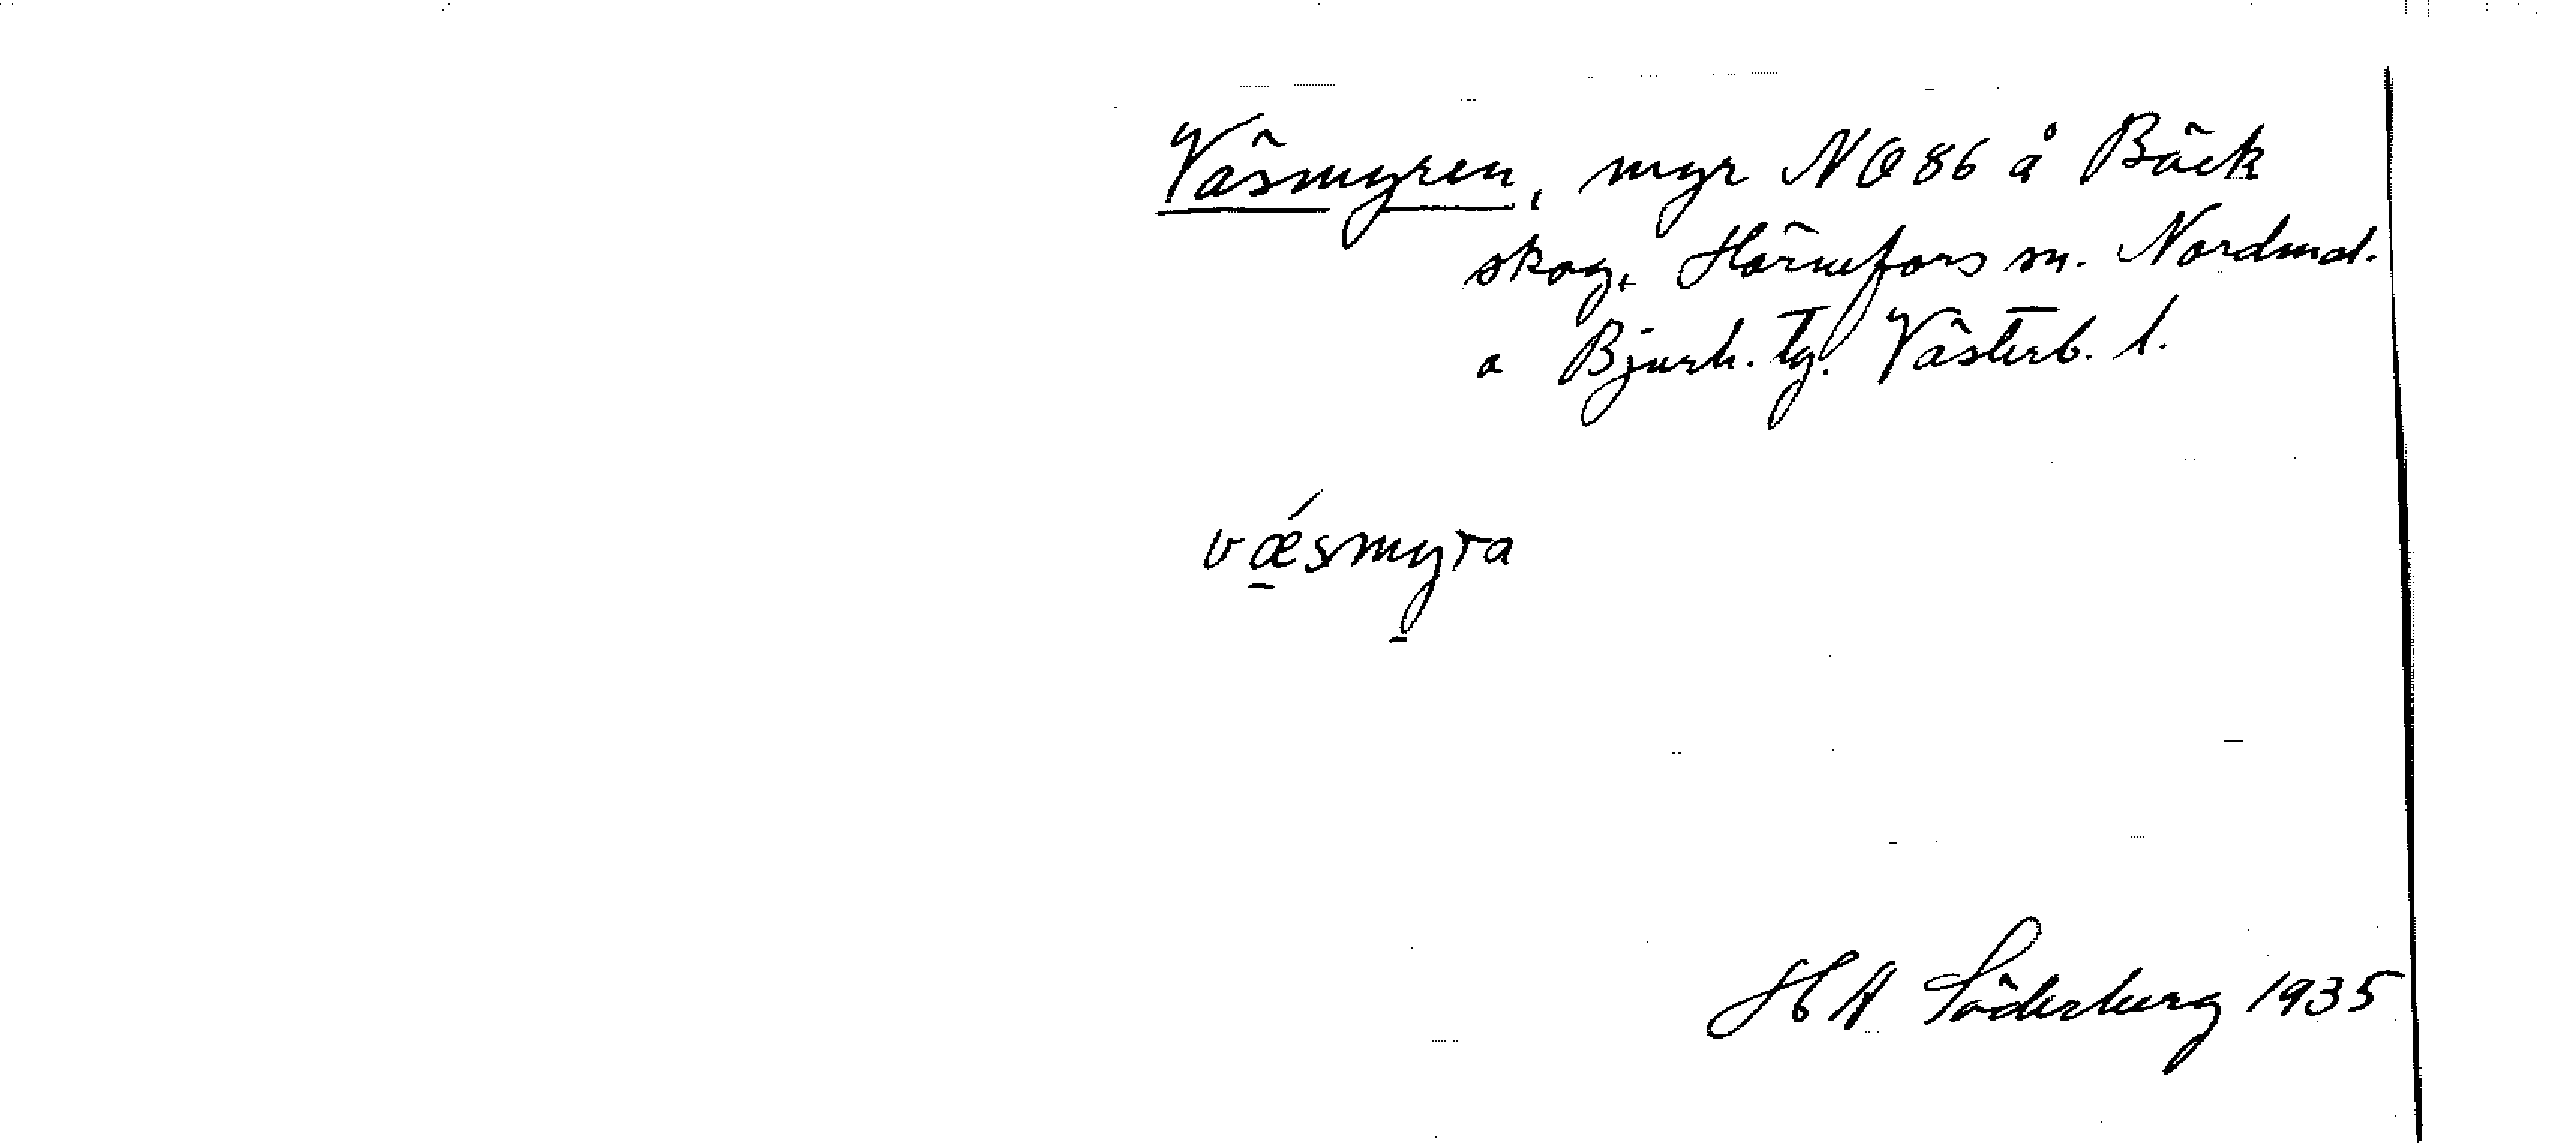 Väsmyren, myr NO 86 å Bäck
skog, Hörnefors sn. Nordmal.
o Bjurh. tg. Västerb. l.
vǽsmyra
H A Söderberg 1935